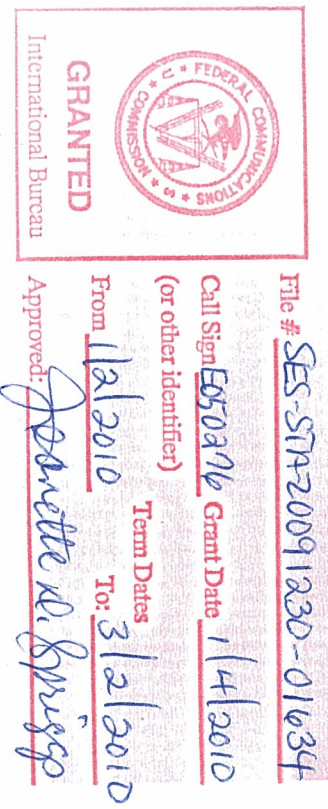 U.S. FEDERAL COMMUNICATIONS COMMISSION
GRANTED
International Bureau
File # SES-STA-20091230-01634
Call Sign E050276 Grant Date 1/4/2010
(or other identifier)
Term Dates
From 1/2/2010 To: 3/2/2010
Approved: Jeanette M. Spriggs